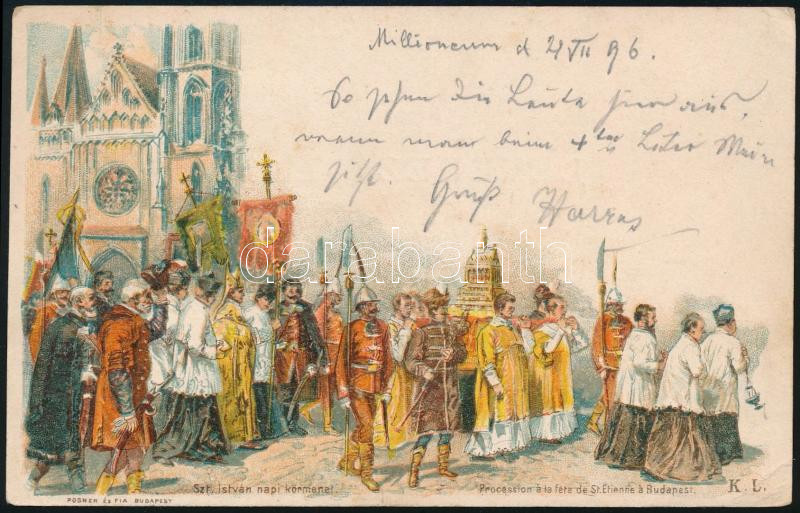 Millioneum d 21 VII 96.
So sehen die Leute hier aus,
wenn man beim 4ten Liter Wein
sitzt. Gruß Harras
darabanth
Szt. István napi körmenet.
Procession à la fête de St. Etienne à Budapest.
K. L.
POSNER ÉS FIA BUDAPEST